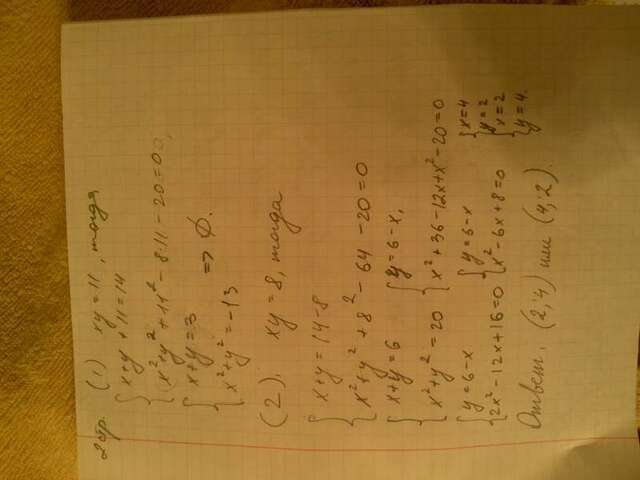 2 стр. (1) xy = 11, тогда
{ x + y + 11 = 14
{ x² + y² + 11² - 8·11 - 20 = 0,
{ x + y = 3
{ x² + y² = -13 => ∅.
(2). xy = 8, тогда
{ x + y = 14 - 8
{ x² + y² + 8² - 64 - 20 = 0
{ x + y = 6
{ x² + y² = 20
{ y = 6 - x,
{ x² + 36 - 12x + x² - 20 = 0
{ y = 6 - x
{ 2x² - 12x + 16 = 0
{ y = 6 - x
{ x² - 6x + 8 = 0
{ x = 4
{ y = 2
{ x = 2
{ y = 4.
Ответ, (2; 4) или (4; 2).